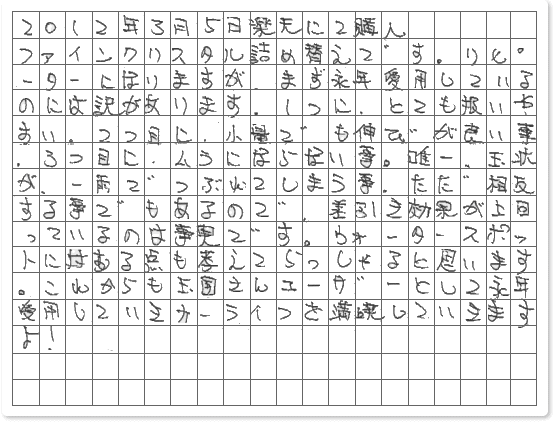 2012年3月5日楽天にて購入
ファインクリスタル詰め替えです。りピ
ーターにはりますが、まず永年愛用している
のには訳が有ります。1つに、とても扱いや
すい。2つ目に、小量でも伸びが良い事
。3つ目に、ムラにならない事。唯一、玉状
が、一番でつぶれてしまう事。ただ相反
する事でもあるので、差引き効果が上回
っているのは事実です。ウォータースポッ
トに対する点も考えてらっしゃると思います
。これからも玉国さんユーザーとして永年
愛用していきカーライフを満喫していきます
よ!